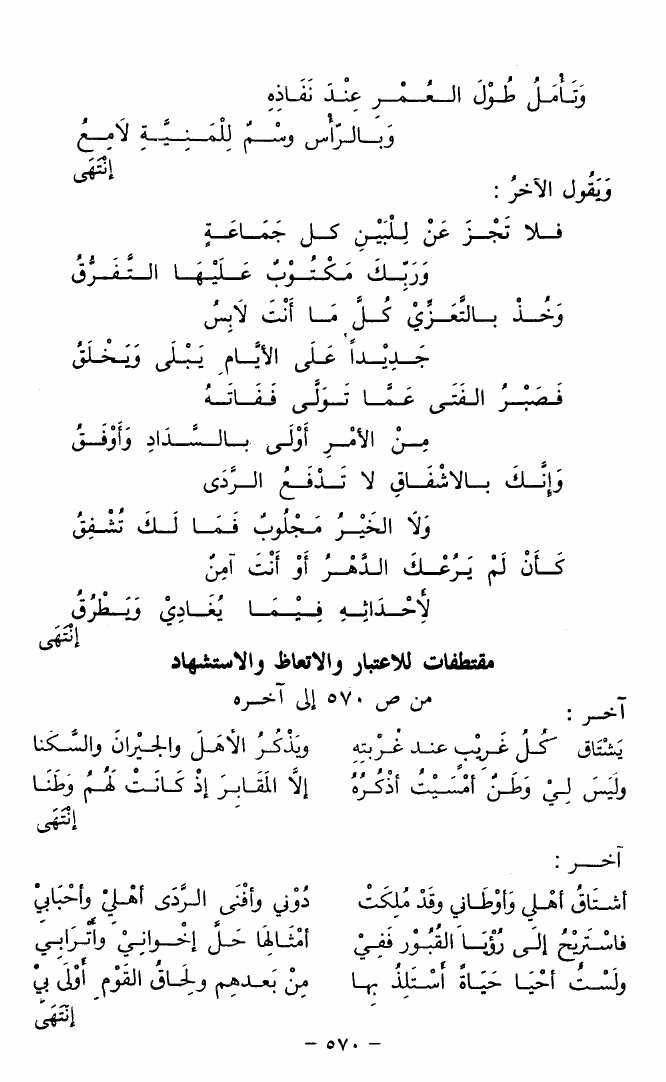 وَتَأْمَلُ طُوْلَ العُمْرِ عِنْدَ نَفَاذِهِ
وَبِالرَّأْسِ وسْمٌ لِلْمَنِيَّةِ لَامِعُ
إنْتَهَى
وَيَقُول الآخرُ :
فلا تَجْزَ عَنْ لِلْبَيْنِ كل جَمَاعَةٍ
وَرَبِّكَ مَكْتُوْبٌ عَلَيْهَا التَّفَرُّقُ
وَخُذْ بالتَّعَزِّيْ كُلَّ مَا أَنْتَ لَابِسُ
جَدِيْداً عَلَى الأيَّامِ يَبْلَى وَيَخْلَقُ
فَصَبْرُ الفَتَى عَمَّا تَوَلَّى فَفَاتَهُ
مِنْ الأَمْرِ أَوْلَى بالسَّدَادِ وَأَوْفَقُ
وَإِنَّكَ بالاشْفَاقِ لا تَدْفَعُ الرَّدَى
وَلَا الخَيْرُ مَجْلُوبٌ فَمَا لَكَ تُشْفِقُ
كَأنْ لَمْ يَرُعْكَ الدَّهْرُ أوْ أنْتَ آمِنٌ
لأَحْدَاثِهِ فِيْمَا يُغَادِيْ وَيَطْرُقُ
إنْتَهَى
مقتطفات للاعتبار والاتعاظ والاستشهاد
من ص ٥٧٠ إلى آخره
آخر :
يَشْتَاق كُلُ غَرِيْبٍ عند غُرْبتِهِ ويَذْكرُ الأهَلَ والجِيْرانَ والسَّكنا
ولَيسَ لِيْ وَطَنٌ أمْسَيْتُ أذْكُرُهُ إلَّا المَقَابِرَ إذْ كانَتْ لَهُمُ وَطَنَا
إنْتَهَى
آخر :
أشتَاقُ أهْلِي وَأوْطَاني وقَدْ مُلِكَتْ دُوْني وأفْنَى الرَّدَى أهْليْ وأحْبَابيْ
فاسْتَرِيْحُ إلى رُؤْيَا القُبُوْرِ فَفِيْ أمْثَالِهَا حَلَّ إخْوانِيْ وأتْرَابي
ولَسْتُ أحْيَا حَيَاةً أسْتَلِذُ بها مِنْ بَعدهم ولحَاقُ القَوْمِ أوْلَى بيْ
إنْتَهَى
– ٥٧٠ –